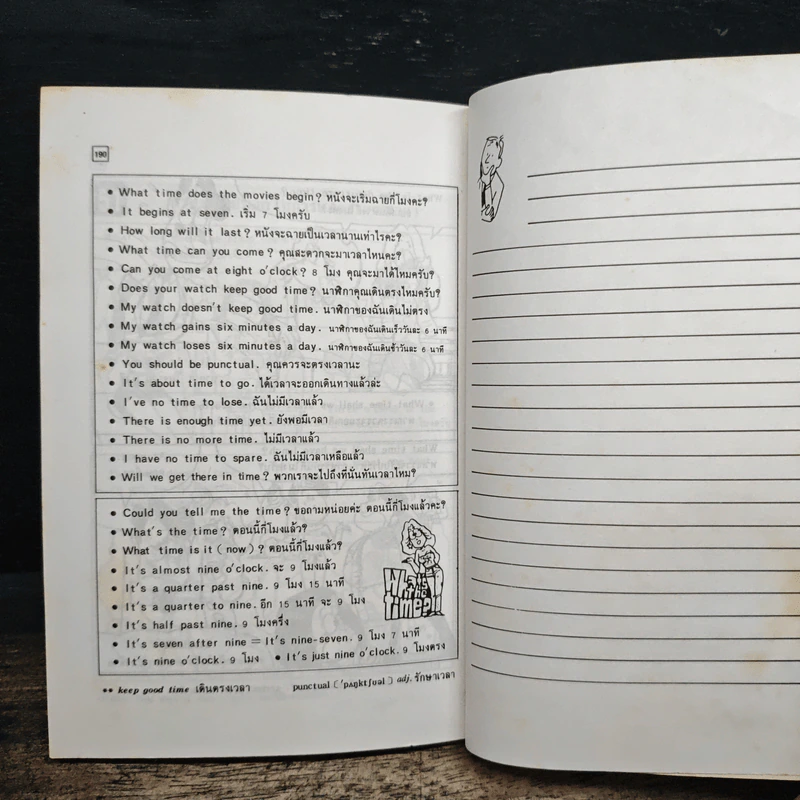 190
• What time does the movies begin? หนังจะเริ่มฉายกี่โมงคะ?
• It begins at seven. เริ่ม 7 โมงครับ
• How long will it last? หนังจะฉายเป็นเวลานานเท่าไรคะ?
• What time can you come? คุณสะดวกจะมาเวลาไหนคะ?
• Can you come at eight o'clock? 8 โมง คุณจะมาได้ไหมครับ?
• Does your watch keep good time? นาฬิกาคุณเดินตรงไหมครับ?
• My watch doesn't keep good time. นาฬิกาของฉันเดินไม่ตรง
• My watch gains six minutes a day. นาฬิกาของฉันเดินเร็ววันละ 6 นาที
• My watch loses six minutes a day. นาฬิกาของฉันเดินช้าวันละ 6 นาที
• You should be punctual. คุณควรจะตรงเวลานะ
• It's about time to go. ได้เวลาจะออกเดินทางแล้วล่ะ
• I've no time to lose. ฉันไม่มีเวลาแล้ว
• There is enough time yet. ยังพอมีเวลา
• There is no more time. ไม่มีเวลาแล้ว
• I have no time to spare. ฉันไม่มีเวลาเหลือแล้ว
• Will we get there in time? พวกเราจะไปถึงที่นั่นทันเวลาไหม?
• Could you tell me the time? ขอถามหน่อยค่ะ ตอนนี้กี่โมงแล้วคะ?
• What's the time? ตอนนี้กี่โมงแล้ว?
• What time is it (now)? ตอนนี้กี่โมงแล้ว?
• It's almost nine o'clock. จะ 9 โมงแล้ว
• It's a quarter past nine. 9 โมง 15 นาที
• It's a quarter to nine. อีก 15 นาที จะ 9 โมง
• It's half past nine. 9 โมงครึ่ง
• It's seven after nine = It's nine-seven. 9 โมง 7 นาที
• It's nine o'clock. 9 โมง • It's just nine o'clock. 9 โมงตรง
•• keep good time เดินตรงเวลา punctual ('pʌŋktʃuəl) adj. รักษาเวลา